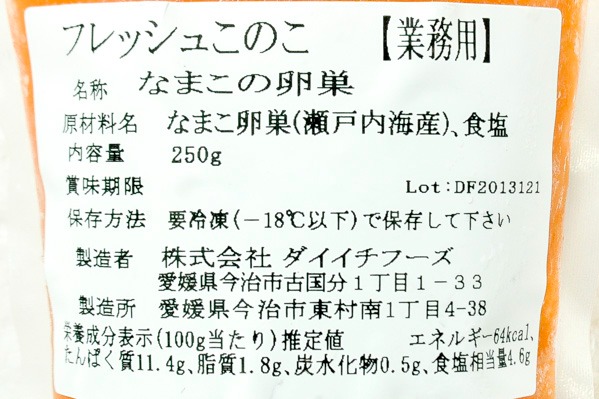 フレッシュこのこ 【業務用】
名称 なまこの卵巣
原材料名 なまこ卵巣(瀬戸内海産)、食塩
内容量 250g
賞味期限 Lot:DF2013121
保存方法 要冷凍(－18℃以下)で保存して下さい
製造者 株式会社 ダイイチフーズ
愛媛県今治市古国分１丁目１－３３
製造所 愛媛県今治市東村南1丁目4-38
栄養成分表示(100g当たり)推定値 エネルギー64kcal、
たんぱく質11.4g、脂質1.8g、炭水化物0.5g、食塩相当量4.6g